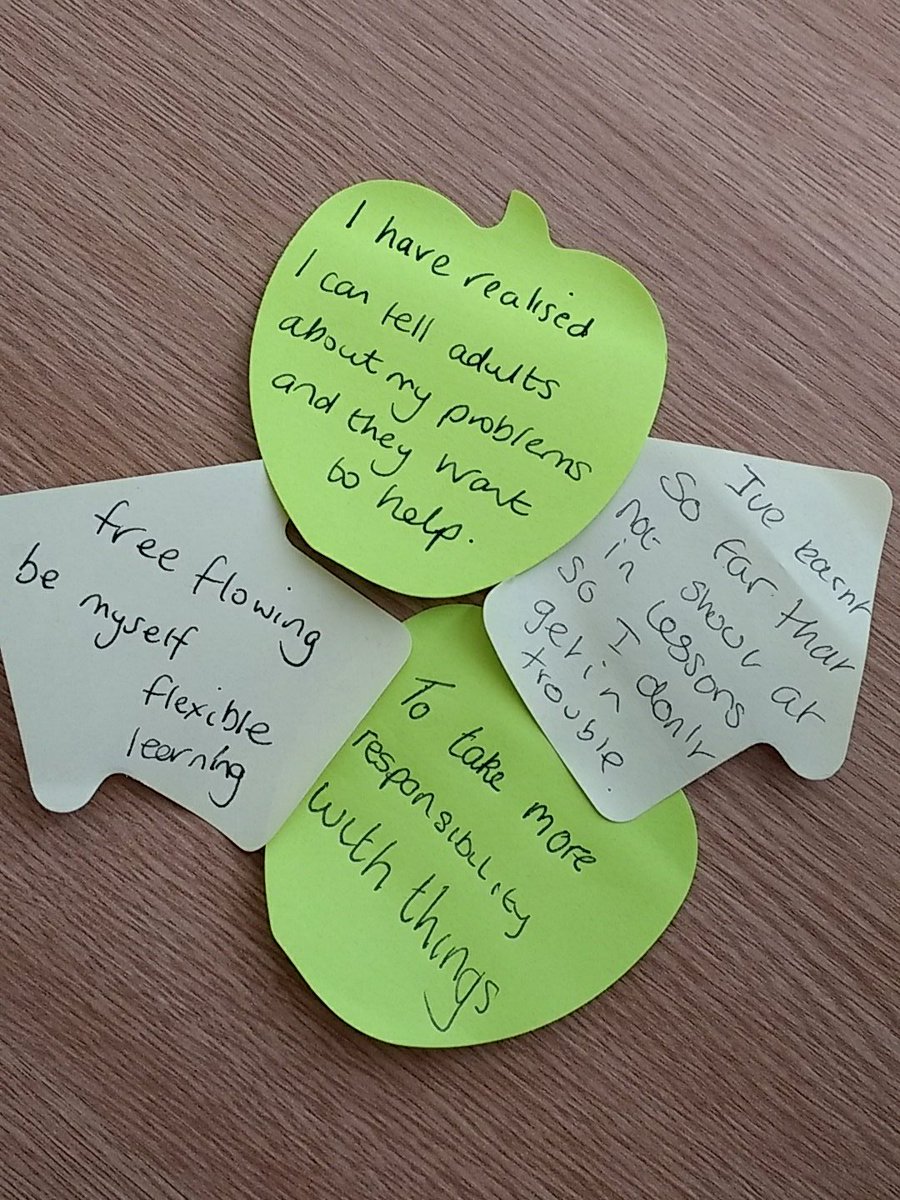 I have realised
I can tell adults
about my problems
and they want
to help.
free flowing
be myself
flexible
learning
I've learnt
So far that
not shout at
in lessons
so I don't
get in
trouble.
To take more
responsibility
with things